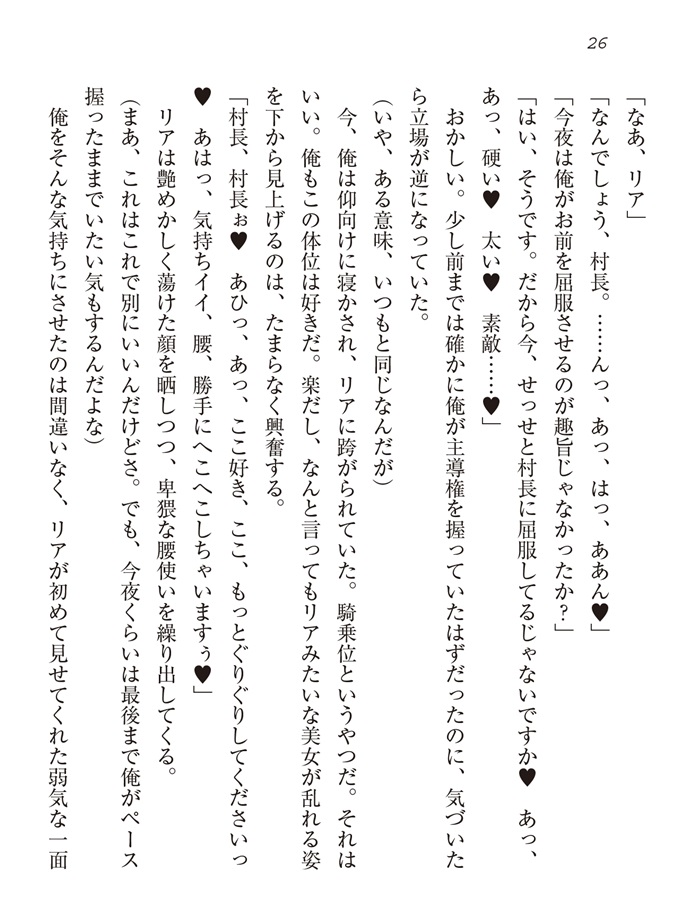 26
「なあ、リア」
「なんでしょう、村長。……んっ、あっ、はっ、ああん♥」
「今夜は俺がお前を屈服させるのが趣旨じゃなかったか？」
「はい、そうです。だから今、せっせと村長に屈服してるじゃないですか♥　あっ、
あっ、硬い♥　太い♥　素敵……♥」
　おかしい。少し前までは確かに俺が主導権を握っていたはずだったのに、気づいた
ら立場が逆になっていた。
（いや、ある意味、いつもと同じなんだが）
　今、俺は仰向けに寝かされ、リアに跨がられていた。騎乗位というやつだ。それは
いい。俺もこの体位は好きだ。楽だし、なんと言ってもリアみたいな美女が乱れる姿
を下から見上げるのは、たまらなく興奮する。
「村長、村長ぉ♥　あひっ、あっ、ここ好き、ここ、もっとぐりぐりしてくださいっ
♥　あはっ、気持ちイイ、腰、勝手にへこへこしちゃいますぅ♥」
　リアは艶めかしく蕩けた顔を晒しつつ、卑猥な腰使いを繰り出してくる。
（まあ、これはこれで別にいいんだけどさ。でも、今夜くらいは最後まで俺がペース
握ったままでいたい気もするんだよな）
　俺をそんな気持ちにさせたのは間違いなく、リアが初めて見せてくれた弱気な一面